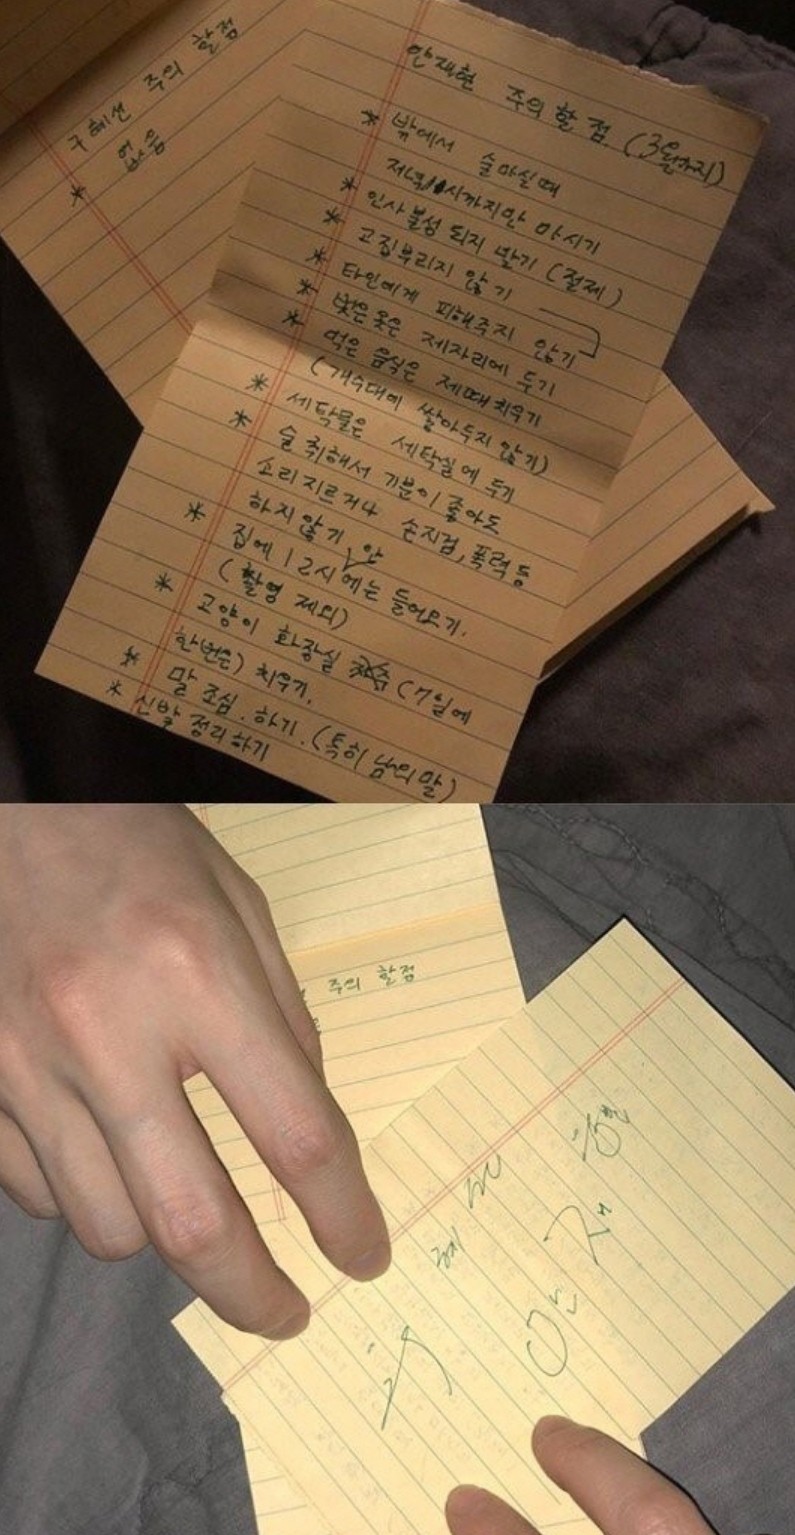 구혜선 주의 할점
* 없음
안재현 주의 할 점. (3월까지)
* 밖에서 술마실때
저녁11시까지만 마시기
* 인사불성 되지 말기 (절제)
* 고집부리지 않기
* 타인에게 피해주지 않기
* 벗은 옷은 제자리에 두기
* 먹은 음식은 제때 치우기
(개수대에 쌓아두지 않기)
* 세탁물은 세탁실에 두기
* 술 취해서 기분이 좋아도
소리지르거나 손지검, 폭력 등
하지 않기
* 집에 12시 안에는 들어오기.
(촬영 제외)
* 고양이 화장실 (7일에
한번은) 치우기.
* 말 조심. 하기. (특히 남의 말)
* 신발 정리하기
주의 할점
구 혜 선
안 재 현